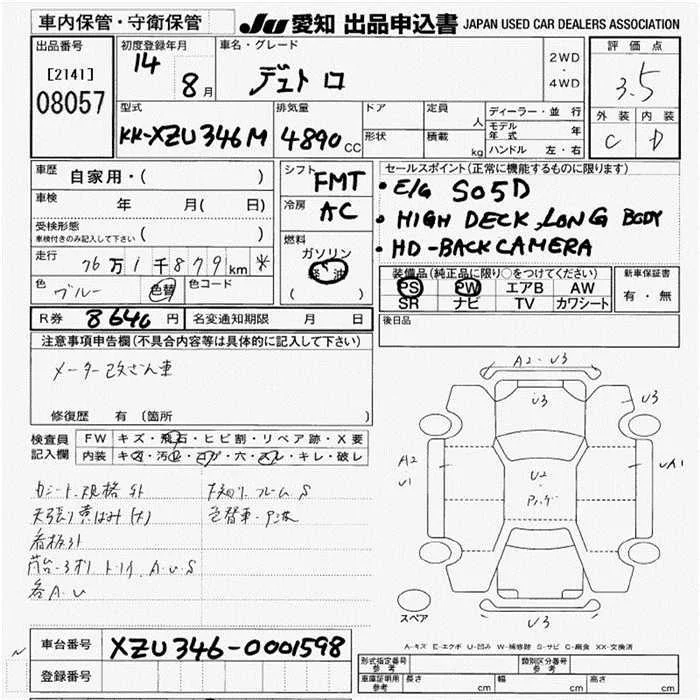 車内保管・守衛保管 JU 愛知 出品申込書 JAPAN USED CAR DEALERS ASSOCIATION
出品番号 初度登録年月 車名・グレード 2WD・4WD 評価点
[2141] 14 8月 デュトロ 3.5
08057
型式 排気量 ドア 定員 人 ディーラー・並行 外装 内装
KK-XZU346M 4890CC 形状 積載 kg モデル年式 年 C D
ハンドル 左・右
車歴 自家用・( ) シフト FMT セールスポイント(正常に機能するものに限ります)
車検 年 月( 日) 冷房 AC ・E/G S05D
受検形態 車検付きのみ記入して下さい ( ) ・HIGH DECK, LONG BODY
走行 76万1千879km * 燃料 ガソリン 軽油 ( ) ・HD-BACK CAMERA
色 ブルー 色替 色コード 装備品(純正品に限り○をつけてください) 新車保証書
PS PW エアB AW 有・無
SR ナビ TV カワシート
R券 8640円 名変通知期限 月 日 後日品
注意事項申告欄(不具合内容等は具体的に記入して下さい)
メーター改ざん車
修復歴 有 (箇所 )
検査員記入欄 FW キズ・飛石・ヒビ割・リペア跡・X要
内装 キズ・汚レ・コゲ・穴・スレ・キレ・破レ
シート、規格外 下廻り フレーム S
天張り 色替車・
看板外
荷台 A.U.S
各A.U
A2・U3
U3
U3
A2
U1
U2
UA1
U3
スペア
A-キズ E-エクボ U-凹み W-補修跡 S-サビ C-腐食 XX-交換済
車台番号 XZU346-0001598 形式指定番号 参考 類別区分番号 参考
登録番号 車庫証明用 参考 長さ cm 幅 cm 高さ cm